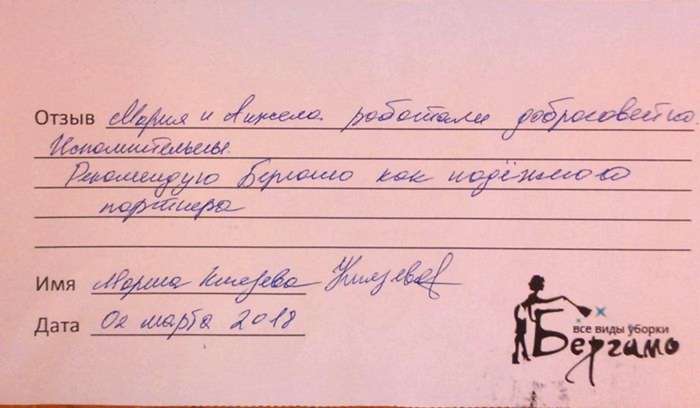 Отзыв Мария и Анжела работали добросовестно.
Исполнительны.
Рекомендую Бергамо как надёжного
партнера
Имя Мария Князева Князева
Дата 02 марта 2018
все виды уборки
Бергамо